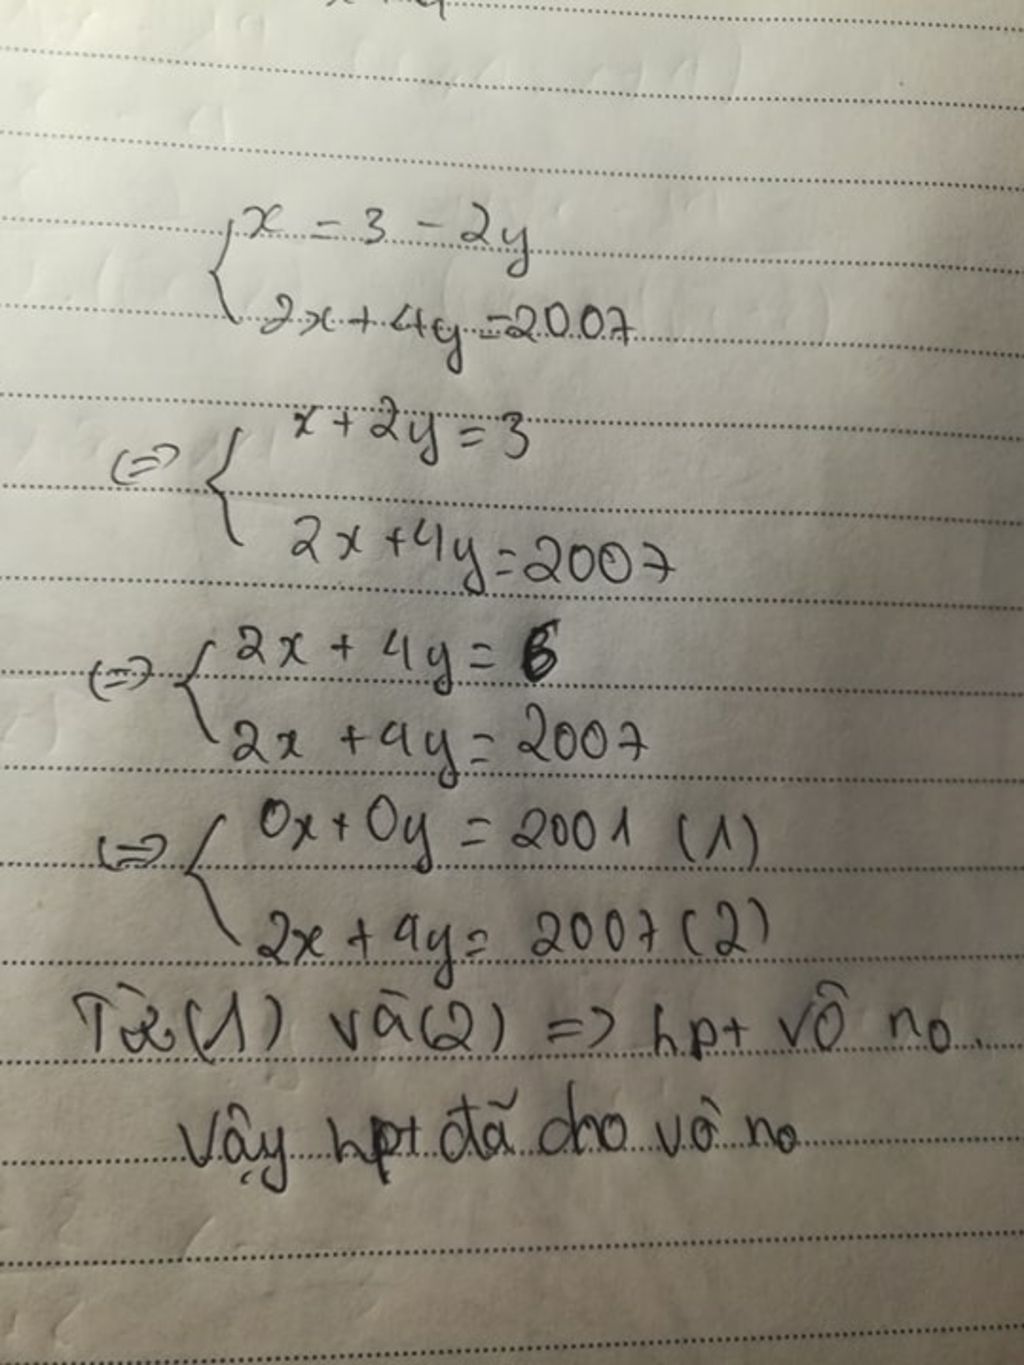 { x = 3 - 2y
2x + 4y = 2007
(=) { x + 2y = 3
2x + 4y = 2007
(=) { 2x + 4y = 6
2x + 4y = 2007
(=) { 0x + 0y = 2001 (1)
2x + 4y = 2007 (2)
Từ (1) và (2) => hpt vô no.
Vậy hpt đã cho vô no